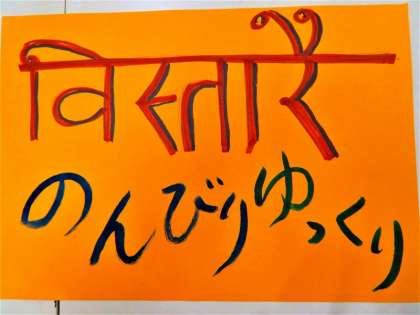 विस्तारै
のんびりゆっくり